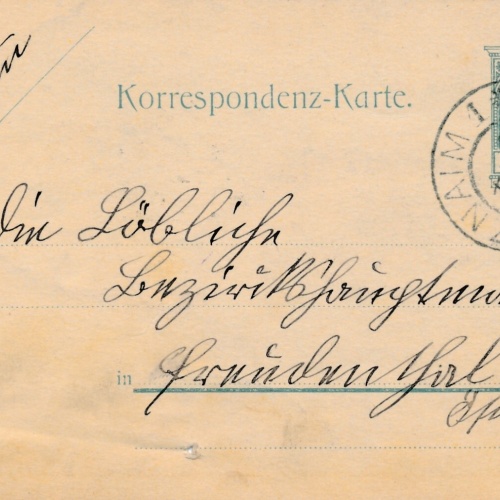 Korrespondenz-Karte.
ZNAIM 1
die Löbliche
Bezirkshauptma
in Freudenthal